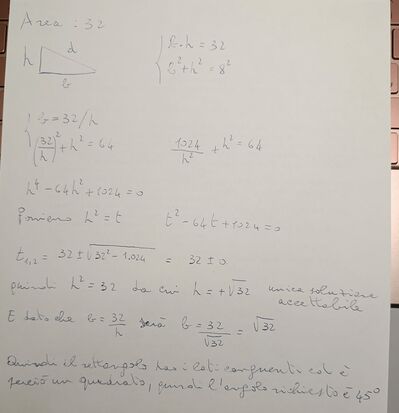 Area : 32
h d b
{ b·h = 32
b² + h² = 8²
{ b = 32/h
(32/h)² + h² = 64
1024/h² + h² = 64
h⁴ - 64h² + 1024 = 0
Poniamo h² = t t² - 64t + 1024 = 0
t₁,₂ = 32 ± √32² - 1.024 = 32 ± 0
quindi h² = 32 da cui h = +√32 unica soluzione
accettabile
E dato che b = 32/h sarà b = 32/√32 = √32
Quindi il rettangolo has i lati congruenti ed è
perciò un quadrato, quindi l'angolo richiesto è 45°